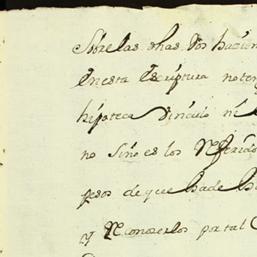 Sôbre las dhas dos hacien
en esta Escriptura no ten
hipoteca Vinculo ni
no Sino es los Referido
pesos de que hade ha
y Reconoserlos por tal C